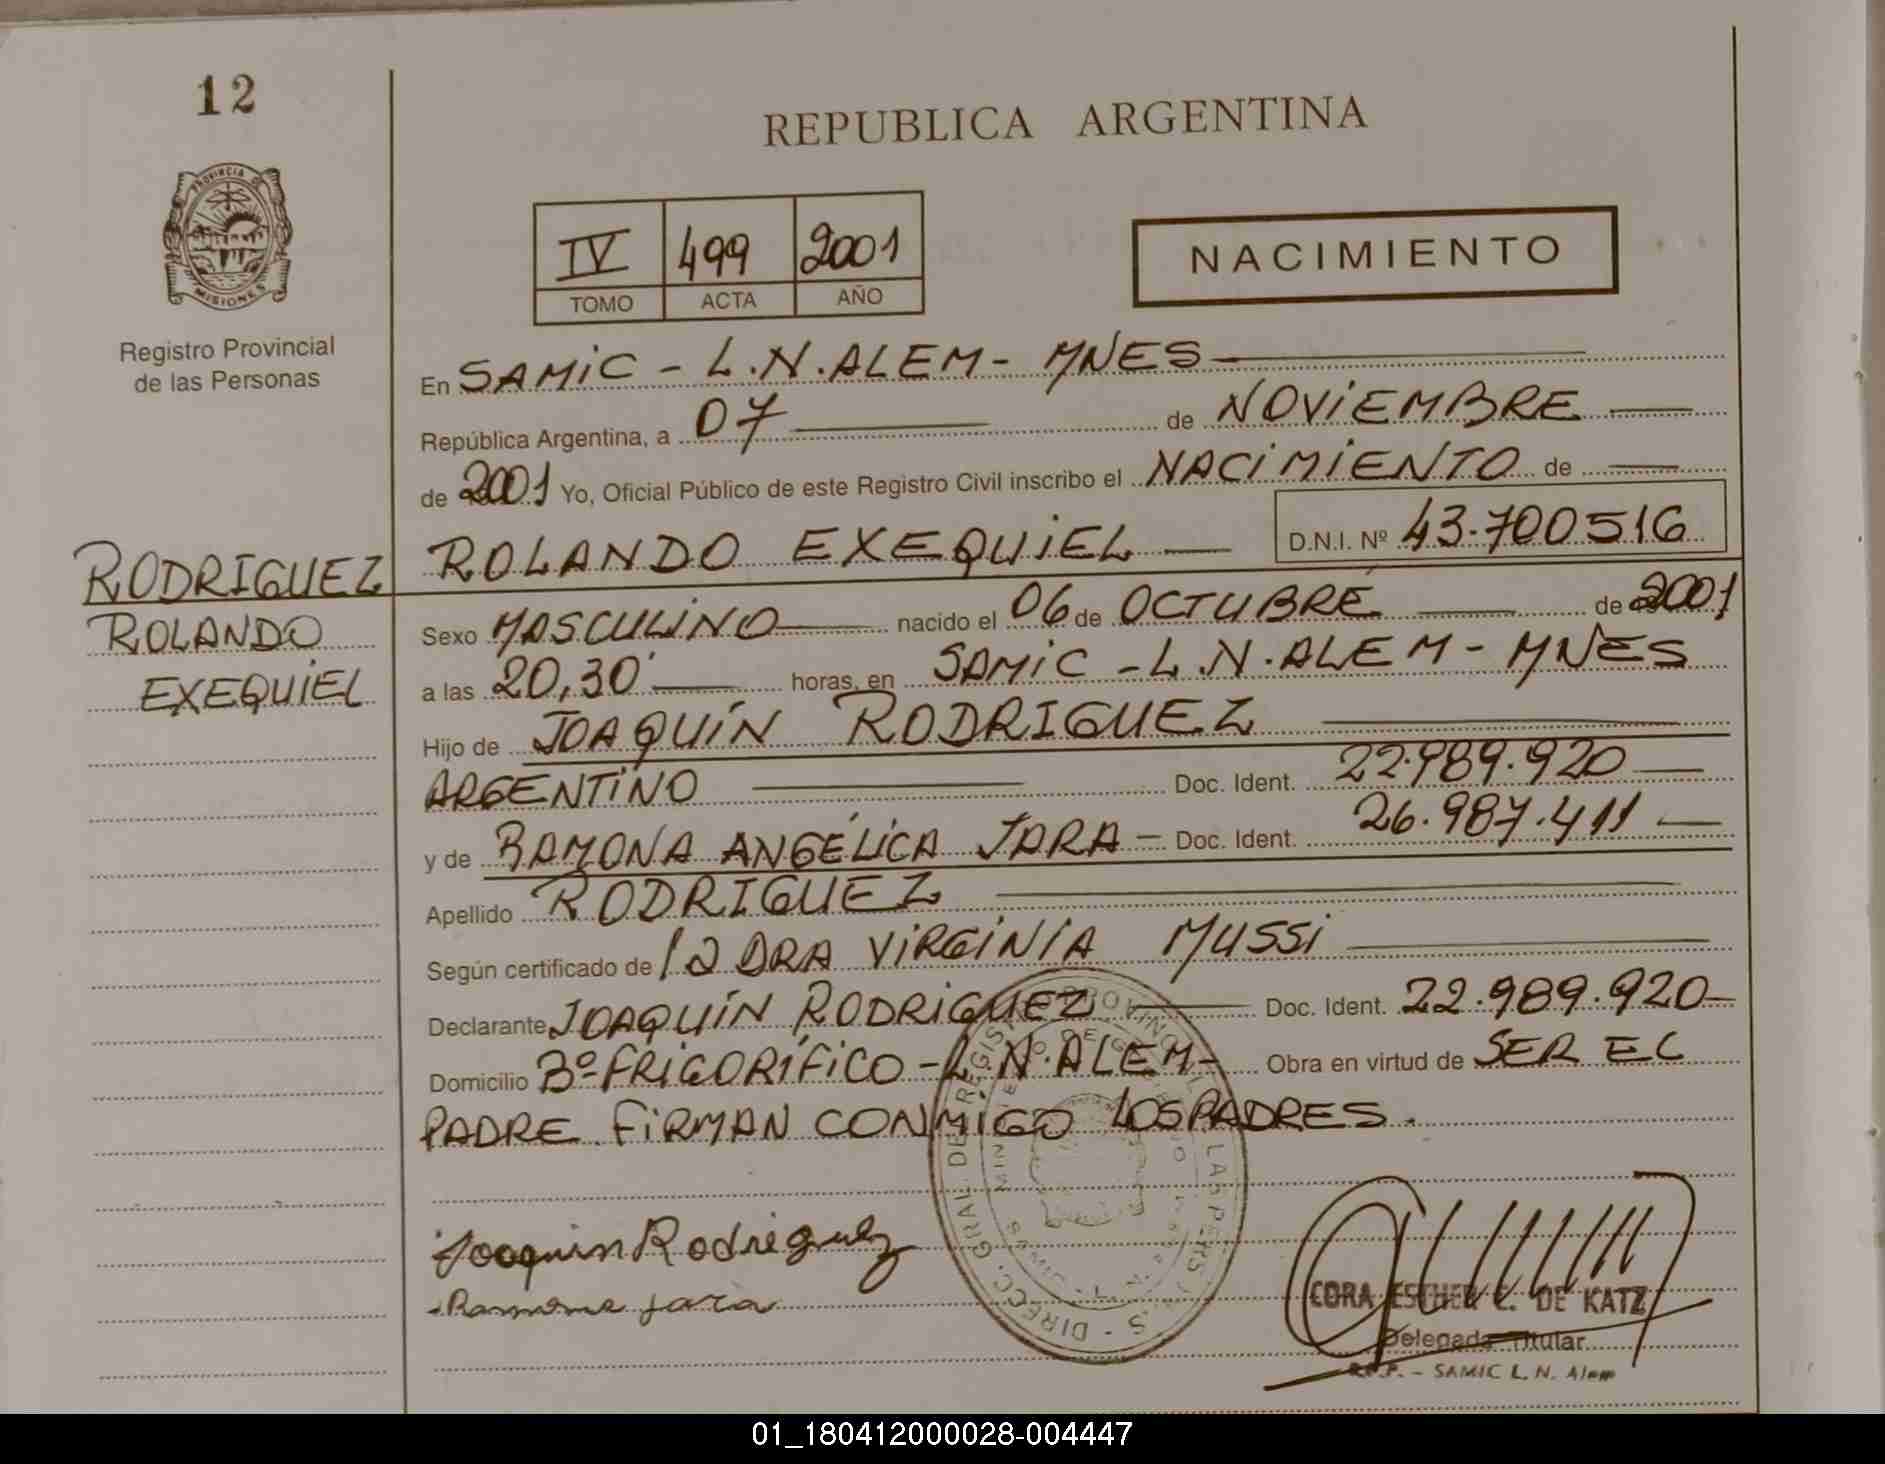 12
REPUBLICA ARGENTINA
PROVINCIA DE
MISIONES
Registro Provincial
de las Personas
IV 499 2001
TOMO ACTA AÑO
NACIMIENTO
En SAMIC - L.N.ALEM - MNES
República Argentina, a 07 de NOVIEMBRE
de 2001 Yo, Oficial Público de este Registro Civil inscribo el NACIMIENTO de
ROLANDO EXEQUIEL D.N.I. Nº 43.700516
RODRIGUEZ
ROLANDO
EXEQUIEL
Sexo MASCULINO nacido el 06 de OCTUBRE de 2001
a las 20,30 horas, en SAMIC - L.N.ALEM - MNES
Hijo de JOAQUÍN RODRIGUEZ
ARGENTINO Doc. Ident. 22.989.920
y de RAMONA ANGÉLICA JARA - Doc. Ident. 26.987.411
Apellido RODRIGUEZ
Según certificado de la DRA VIRGINIA MUSSI
Declarante JOAQUÍN RODRIGUEZ Doc. Ident. 22.989.920
Domicilio Bº FRIGORÍFICO - L.N.ALEM - Obra en virtud de SER EL
PADRE FIRMAN CONMIGO LOS PADRES.
Joaquin Rodriguez
Ramona Jara
DIRECC. GRAL. DE
CORA ESTHER E. DE KATZ
Delegada Titular
R.P.P. - SAMIC L. N. Alem
01_180412000028-004447